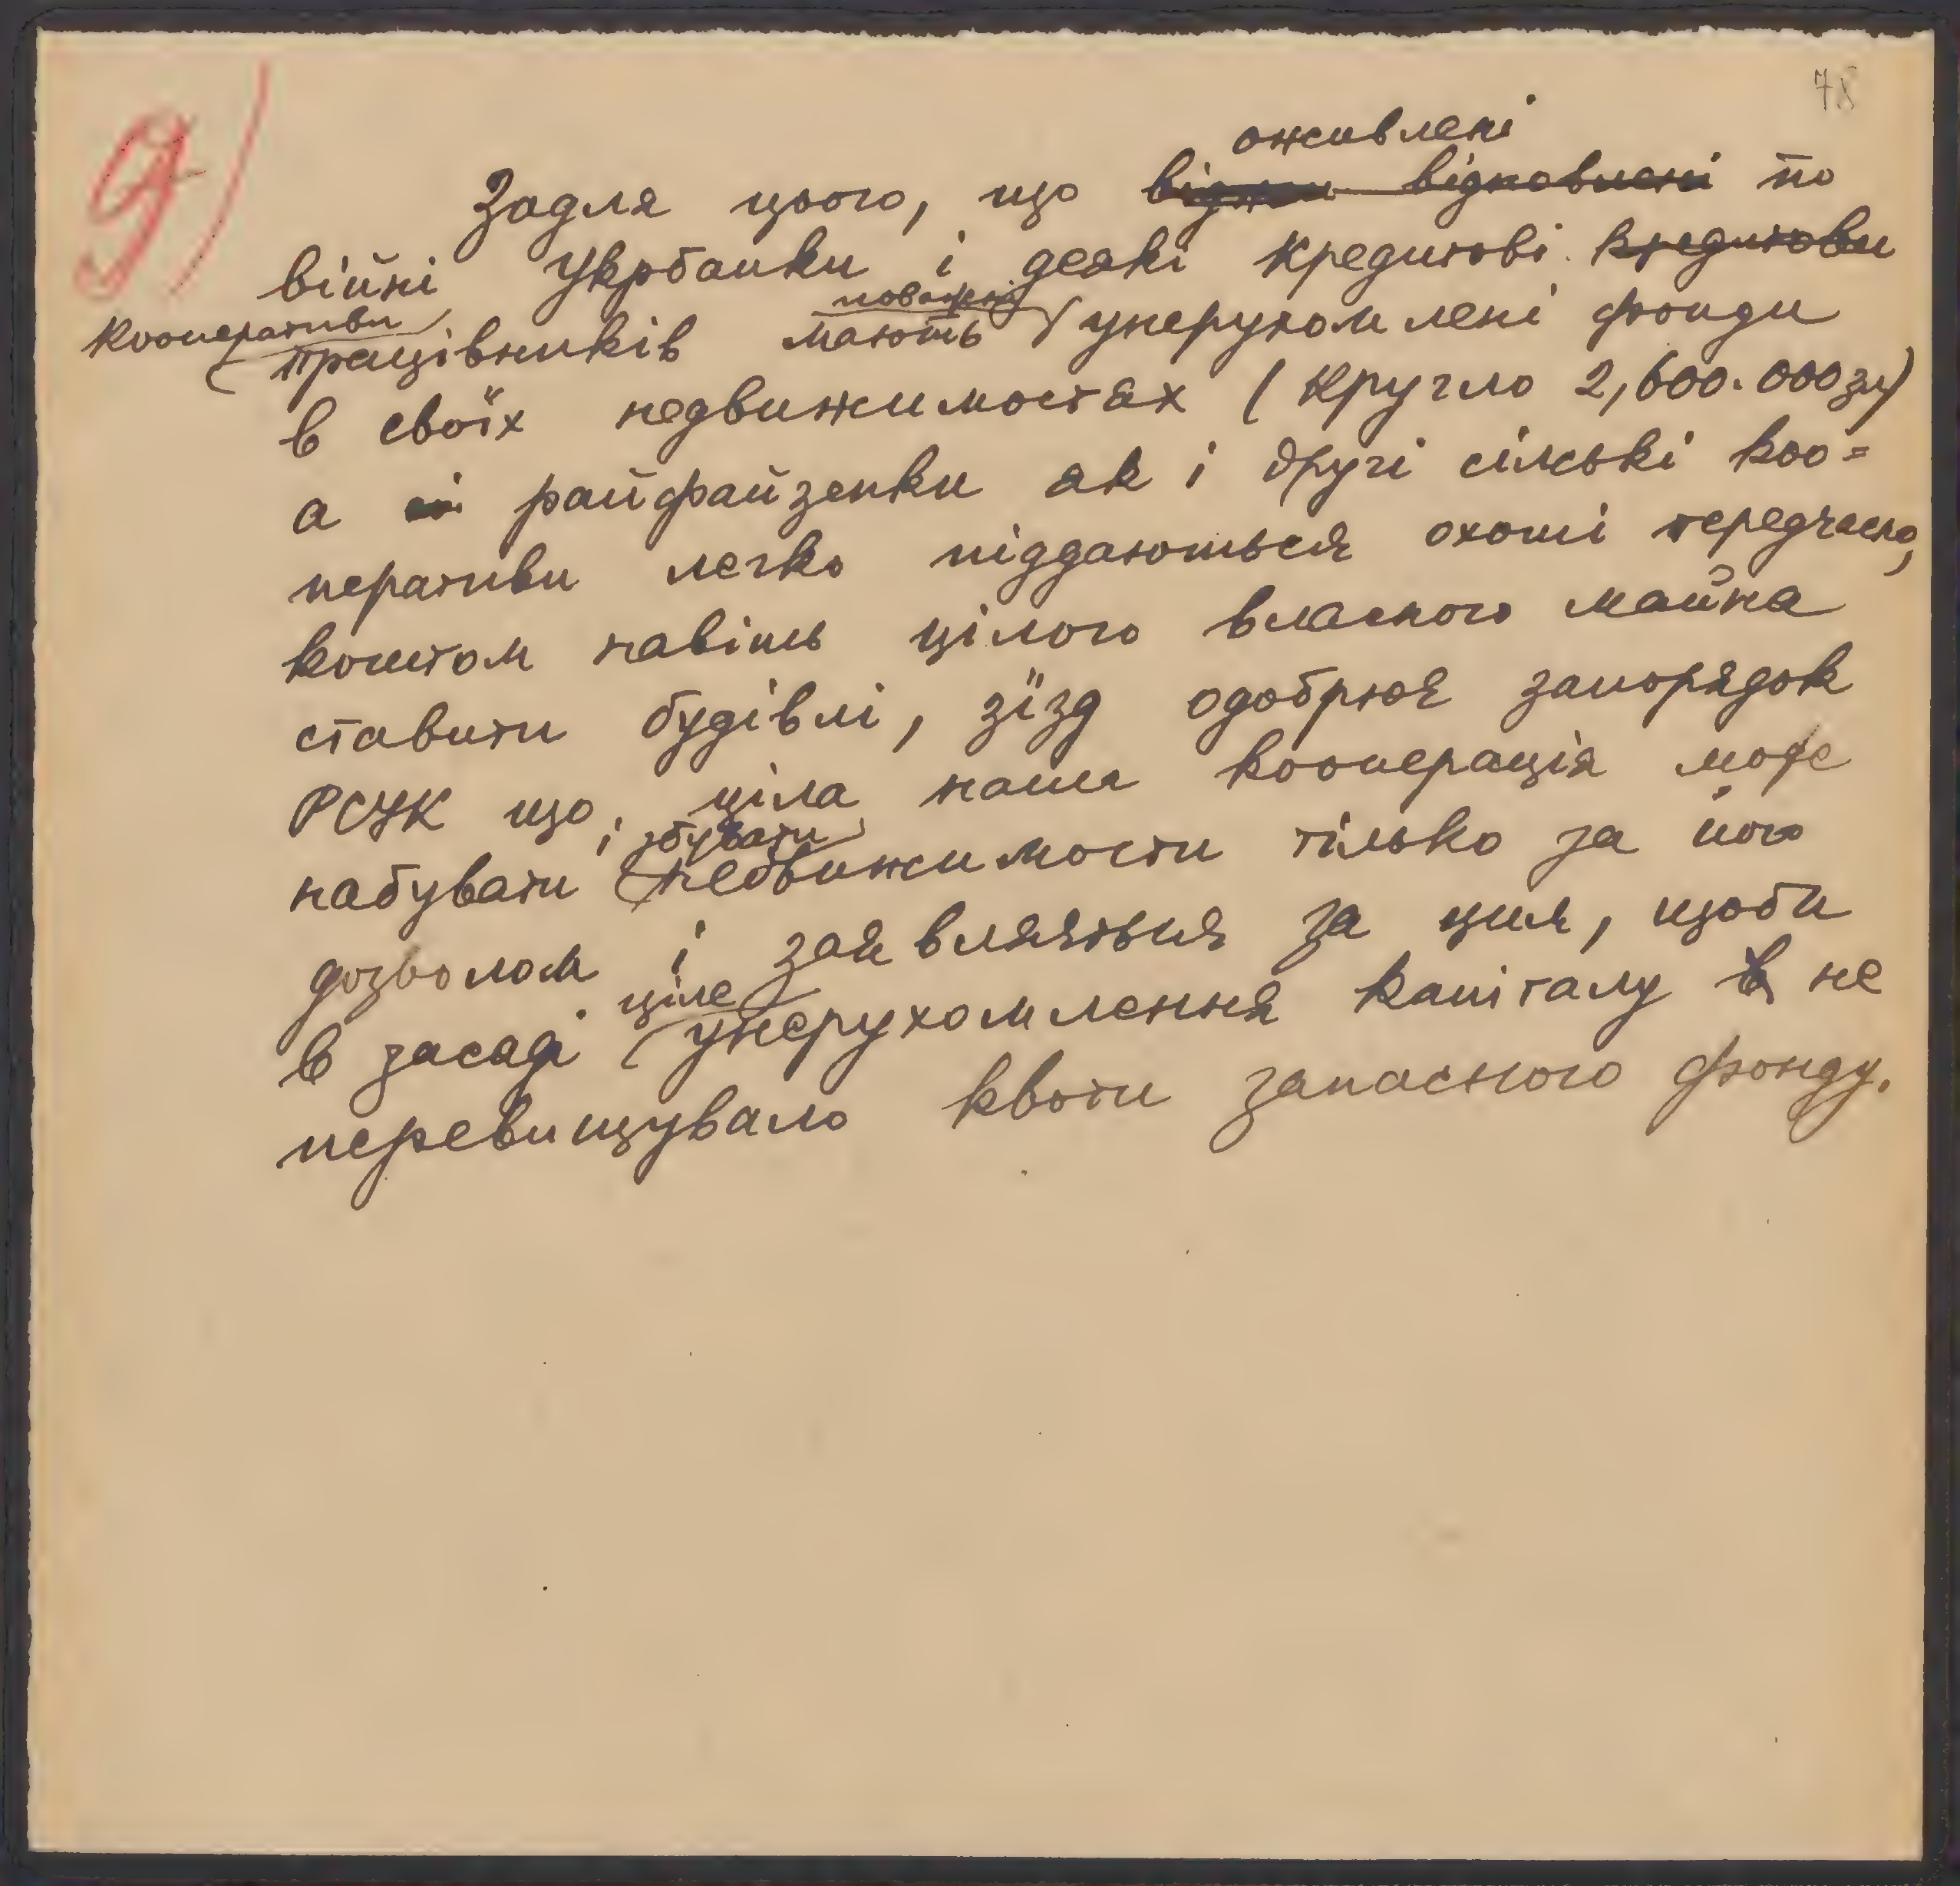 78
9)
оживлені
Задля цього, що віджи відновлені по
війні Укрбанки і деякі кредитові кредитови
кооперативи
поважні
працівників мають унерухомлені фонди
в своїх недвижимостях (кругло 2,600.000 зл)
а райфайзенки як і другі сільські коо=
перативи легко піддаються охоті передчасно,
коштом навіть цілого власного майна
ставити будівлі, зїзд одобрює запорядок
РСУК що ціла наша кооперація може
і збувати
набувати недвижимости тілько за його
дозволом і заявляється за цим, щоби
ціле
в засаді унерухомлення капіталу не
перевищувало квоти запасного фонду.